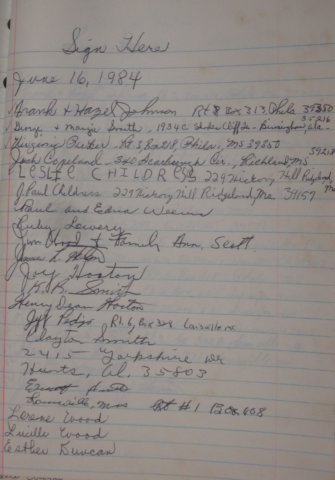 Sign Here
June 16, 1984
Frank & Hazel Johnson Rt 8 Box 313, Phila 39350
George & Margie Smith, 1934 C Shades Cliff Dr - Birmingham, Ala. 35216
Parker, Rt 8 Box 218, Phila, MS 39350
Josh Copeland - 340 Scarbrough Cir., Richland, MS 39218
LESLIE CHILDRESS 229 Hickory Hill Ridgeland
J. Paul Childress 229 Hickory Hill Ridgeland, Ms. 39157
Paul and Edna
Ruby Lowery
Jim Wood & Family Ann, Scott
Joy Hooton
Smith
Henry Dean Hooton
Rt. 6, Box 328 Louisville ms
Clayton Smith
2415 Yorkshire Dr
Hunts, Al. 35803
Louisville, Miss Rt #1 Box 608
Lorene Wood
Lucille Wood
Esther Duncan